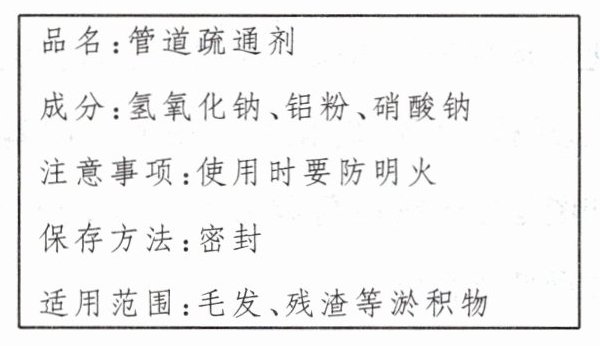 品名:管道疏通剂
成分:氢氧化钠、铝粉、硝酸钠
注意事项:使用时要防明火
保存方法:密封
适用范围:毛发、残渣等淤积物